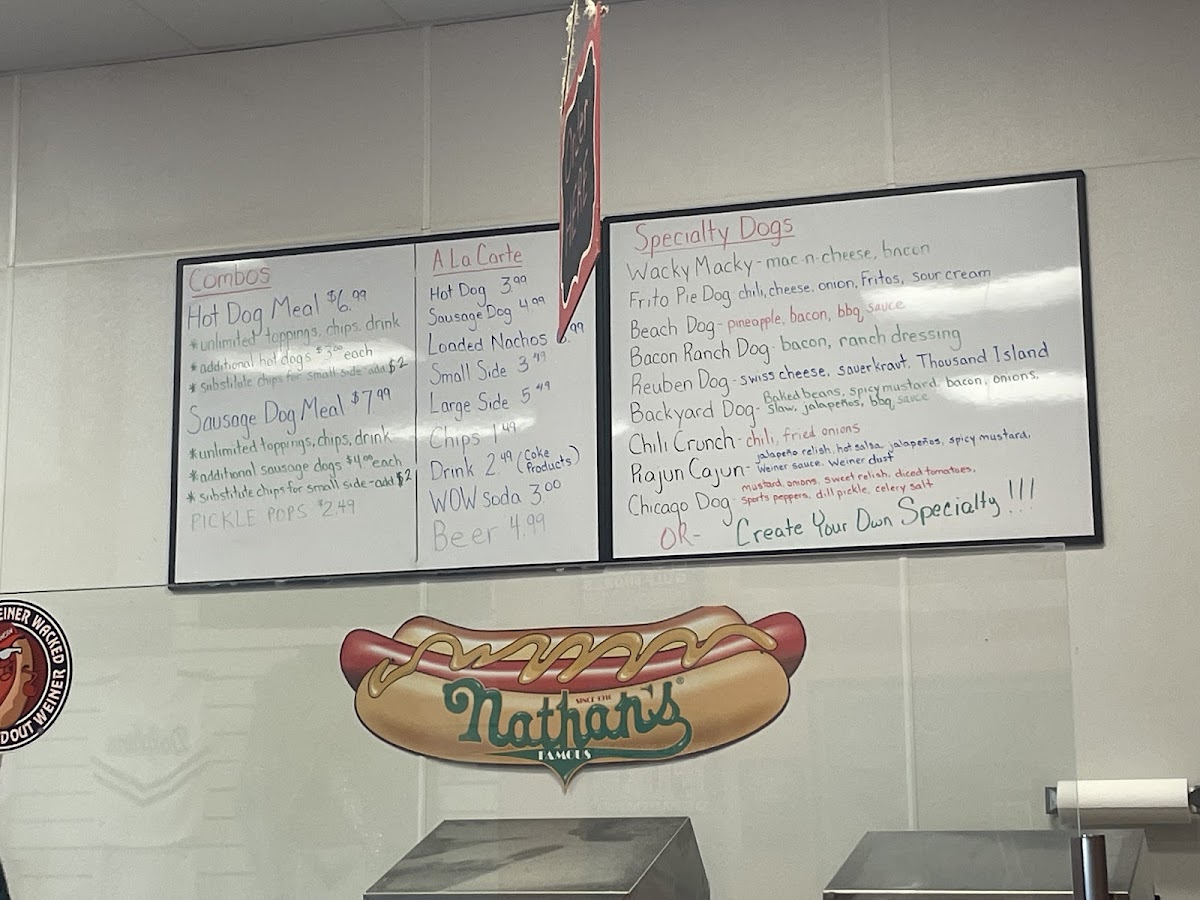 Combos
Hot Dog Meal $6.99
*unlimited toppings, chips, drink
*additional hot dogs $3.00 each
*substitute chips for small side-add $2
Sausage Dog Meal $7.99
*unlimited toppings, chips, drink
*additional sausage dogs $4.00 each
*substitute chips for small side-add $2
PICKLE POPS $2.49
A La Carte
Hot Dog 3.99
Sausage Dog 4.99
Loaded Nachos .99
Small Side 3.49
Large Side 5.49
Chips 1.49
Drink 2.49 (Coke Products)
WOW Soda 3.00
Beer 4.99
Specialty Dogs
Wacky Macky- mac-n-cheese, bacon
Frito Pie Dog chili, cheese, onion, Fritos, sour cream
Beach Dog- pineapple, bacon, bbq sauce
Bacon Ranch Dog- bacon, ranch dressing
Reuben Dog- swiss cheese, sauerkraut, Thousand Island
Backyard Dog- Baked beans, spicy mustard, bacon, onions,
slaw, jalapeños, bbq sauce
Chili Crunch- chili, fried onions
Rajun Cajun- jalapeño relish, hot salsa, jalapeños, spicy mustard,
Weiner sauce, Weiner dust
Chicago Dog- mustard, onions, sweet relish, diced tomatoes,
sports peppers, dill pickle, celery salt
OR- Create Your Own Specialty!!!
EINER WACKED
DOUT WEINER
SINCE 1916
Nathan's®
FAMOUS